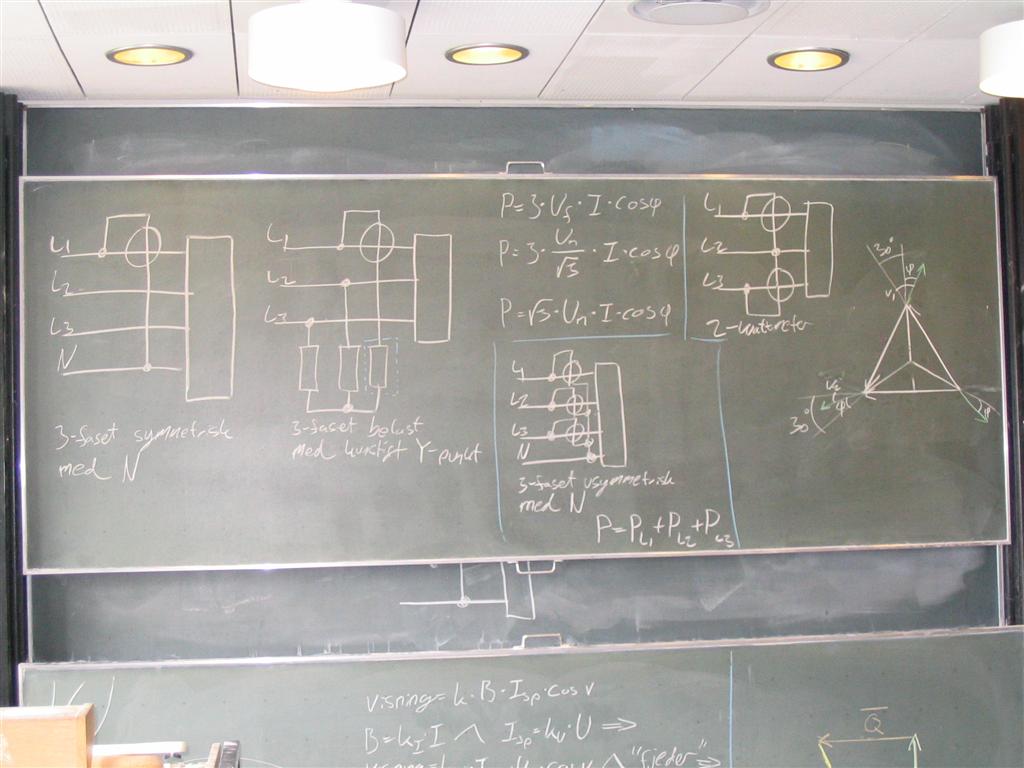 L1
L2
L3
N
3-faset symmetrisk
med N
L1
L2
L3
3-faset belast
med kunstigt Y-punkt
P=3·Uf·I·cosφ
P=3·Un/√3·I·cosφ
P=√3·Un·I·cosφ
L1
L2
L3
N
3-faset usymmetrisk
med N
P=PL1+PL2+PL3
L1
L2
L3
2-wattmeter
30°
φ
v1
30°
φ
visning=k·B·Isp·cos v
B=kI·I ∧ Isp=kU·U ⇒
"fjeder" ⇒
Q